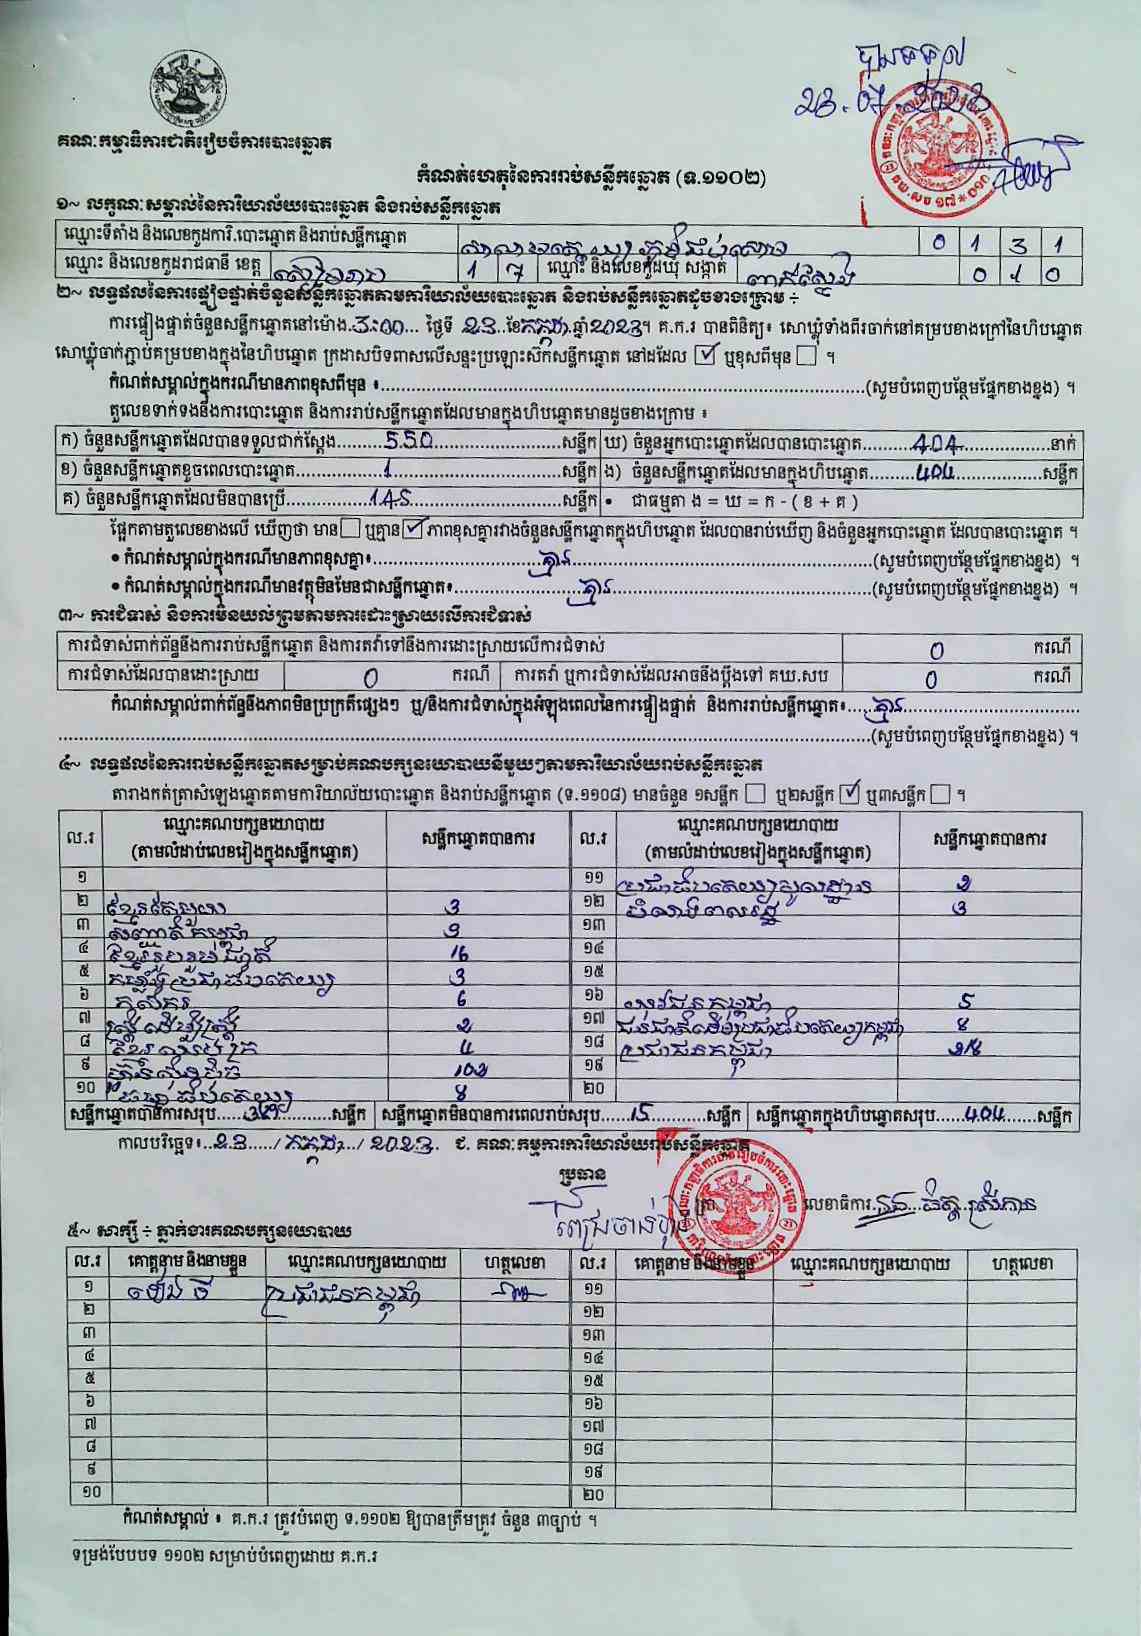 បានទទួល
គណៈកម្មាធិការជាតិរៀបចំការបោះឆ្នោត
កំណត់ហេតុនៃការរាប់សន្លឹកឆ្នោត (ទ.១១០២)
១~ លក្ខណៈសម្គាល់នៃការិយាល័យបោះឆ្នោត និងរាប់សន្លឹកឆ្នោត
ឈ្មោះទីតាំង និងលេខកូដការិ.បោះឆ្នោត និងរាប់សន្លឹកឆ្នោត 0 1 3 1
ឈ្មោះ និងលេខកូដរាជធានី ខេត្ត សៀមរាប 1 7 ឈ្មោះ និងលេខកូដឃុំ សង្កាត់ ពាក់ស្នែង 0 1 0
២~ លទ្ធផលនៃការផ្ទៀងផ្ទាត់ចំនួនសន្លឹកឆ្នោតតាមការិយាល័យបោះឆ្នោត និងរាប់សន្លឹកឆ្នោតដូចខាងក្រោម ÷
ការផ្ទៀងផ្ទាត់ចំនួនសន្លឹកឆ្នោតនៅម៉ោង.3:00... ថ្ងៃទី 23.ខែកក្កដា.ឆ្នាំ2023។ គ.ក.រ បានពិនិត្យ៖ សោឃ្លុំទាំងពីរចាក់នៅគម្របខាងក្រៅនៃហិបឆ្នោត
សោឃ្លុំចាក់ភ្ជាប់គម្របខាងក្នុងនៃហិបឆ្នោត ក្រដាសបិទពាសលើសន្ទះប្រឡោះស៊កសន្លឹកឆ្នោត នៅដដែល ☑ ឬខុសពីមុន ☐ ។
កំណត់សម្គាល់ក្នុងករណីមានភាពខុសពីមុន ៖...(សូមបំពេញបន្ថែមផ្នែកខាងខ្នង) ។
តួលេខទាក់ទងនឹងការបោះឆ្នោត និងការរាប់សន្លឹកឆ្នោតដែលមានក្នុងហិបឆ្នោតមានដូចខាងក្រោម ៖
ក) ចំនួនសន្លឹកឆ្នោតដែលបានទទួលជាក់ស្តែង...550...សន្លឹក ឃ) ចំនួនអ្នកបោះឆ្នោតដែលបានបោះឆ្នោត...404...នាក់
ខ) ចំនួនសន្លឹកឆ្នោតខូចពេលបោះឆ្នោត...1...សន្លឹក ង) ចំនួនសន្លឹកឆ្នោតដែលមានក្នុងហិបឆ្នោត...404...សន្លឹក
គ) ចំនួនសន្លឹកឆ្នោតដែលមិនបានប្រើ...145...សន្លឹក • ជាធម្មតា ង = ឃ = ក - ( ខ + គ )
ផ្អែកតាមតួលេខខាងលើ ឃើញថា មាន☐ ឬគ្មាន☑ ភាពខុសគ្នារវាងចំនួនសន្លឹកឆ្នោតក្នុងហិបឆ្នោត ដែលបានរាប់ឃើញ និងចំនួនអ្នកបោះឆ្នោត ដែលបានបោះឆ្នោត ។
• កំណត់សម្គាល់ក្នុងករណីមានភាពខុសគ្នា៖...គ្មាន...(សូមបំពេញបន្ថែមផ្នែកខាងខ្នង) ។
• កំណត់សម្គាល់ក្នុងករណីមានវត្ថុមិនមែនជាសន្លឹកឆ្នោត៖...គ្មាន...(សូមបំពេញបន្ថែមផ្នែកខាងខ្នង) ។
៣~ ការជំទាស់ និងការមិនយល់ព្រមតាមការដោះស្រាយលើការជំទាស់
ការជំទាស់ពាក់ព័ន្ធនឹងការរាប់សន្លឹកឆ្នោត និងការតវ៉ាទៅនឹងការដោះស្រាយលើការជំទាស់ 0 ករណី
ការជំទាស់ដែលបានដោះស្រាយ 0 ករណី ការតវ៉ា ឬការជំទាស់ដែលអាចនឹងប្តឹងទៅ គឃ.សប 0 ករណី
កំណត់សម្គាល់ពាក់ព័ន្ធនឹងភាពមិនប្រក្រតីផ្សេងៗ ឬ/និងការជំទាស់ក្នុងអំឡុងពេលនៃការផ្ទៀងផ្ទាត់ និងការរាប់សន្លឹកឆ្នោត៖...គ្មាន...
...(សូមបំពេញបន្ថែមផ្នែកខាងខ្នង) ។
៤~ លទ្ធផលនៃការរាប់សន្លឹកឆ្នោតសម្រាប់គណបក្សនយោបាយនីមួយៗតាមការិយាល័យរាប់សន្លឹកឆ្នោត
តារាងកត់ត្រាសំឡេងឆ្នោតតាមការិយាល័យបោះឆ្នោត និងរាប់សន្លឹកឆ្នោត (ទ.១១០៨) មានចំនួន ១សន្លឹក ☐ ឬ២សន្លឹក ☑ ឬ៣សន្លឹក ☐ ។
ល.រ ឈ្មោះគណបក្សនយោបាយ (តាមលំដាប់លេខរៀងក្នុងសន្លឹកឆ្នោត) សន្លឹកឆ្នោតបានការ ល.រ ឈ្មោះគណបក្សនយោបាយ (តាមលំដាប់លេខរៀងក្នុងសន្លឹកឆ្នោត) សន្លឹកឆ្នោតបានការ
១ ១១ ប្រជាធិបតេយ្យមូលដ្ឋាន 2
២ ខ្មែរតែមួយ 3 ១២ 3
៣ សញ្ជាតិកម្ពុជា ១៣
៤ ខ្មែររួបរួមជាតិ 16 ១៤
៥ កម្លាំងប្រជាធិបតេយ្យ 3 ១៥
៦ កសិករ 6 ១៦ យុវជនកម្ពុជា 5
៧ ស្ត្រីដើម្បីស្ត្រី 2 ១៧ ជនជាតិដើមប្រជាធិបតេយ្យកម្ពុជា
៨ 4 ១៨ ប្រជាជនកម្ពុជា
៩ ហ៊្វុនស៊ិនប៉ិច ១៩
១០ ធម្មាធិបតេយ្យ ២០
សន្លឹកឆ្នោតបានការសរុប...សន្លឹក សន្លឹកឆ្នោតមិនបានការពេលរាប់សរុប...15...សន្លឹក សន្លឹកឆ្នោតក្នុងហិបឆ្នោតសរុប...404...សន្លឹក
កាលបរិច្ឆេទ៖..23..../ កក្កដា./ 2023. ជ. គណៈកម្មការការិយាល័យរាប់សន្លឹកឆ្នោត
ប្រធាន
ត្រា លេខាធិការ
៥~ សាក្សី ÷ ភ្នាក់ងារគណបក្សនយោបាយ
ល.រ គោត្តនាម និងនាមខ្លួន ឈ្មោះគណបក្សនយោបាយ ហត្ថលេខា ល.រ គោត្តនាម និងនាមខ្លួន ឈ្មោះគណបក្សនយោបាយ ហត្ថលេខា
១ ប្រជាជនកម្ពុជា ១១
២ ១២
៣ ១៣
៤ ១៤
៥ ១៥
៦ ១៦
៧ ១៧
៨ ១៨
៩ ១៩
១០ ២០
កំណត់សម្គាល់ ៖ គ.ក.រ ត្រូវបំពេញ ទ.១១០២ ឱ្យបានត្រឹមត្រូវ ចំនួន ៣ច្បាប់ ។
ទម្រង់បែបបទ ១១០២ សម្រាប់បំពេញដោយ គ.ក.រ